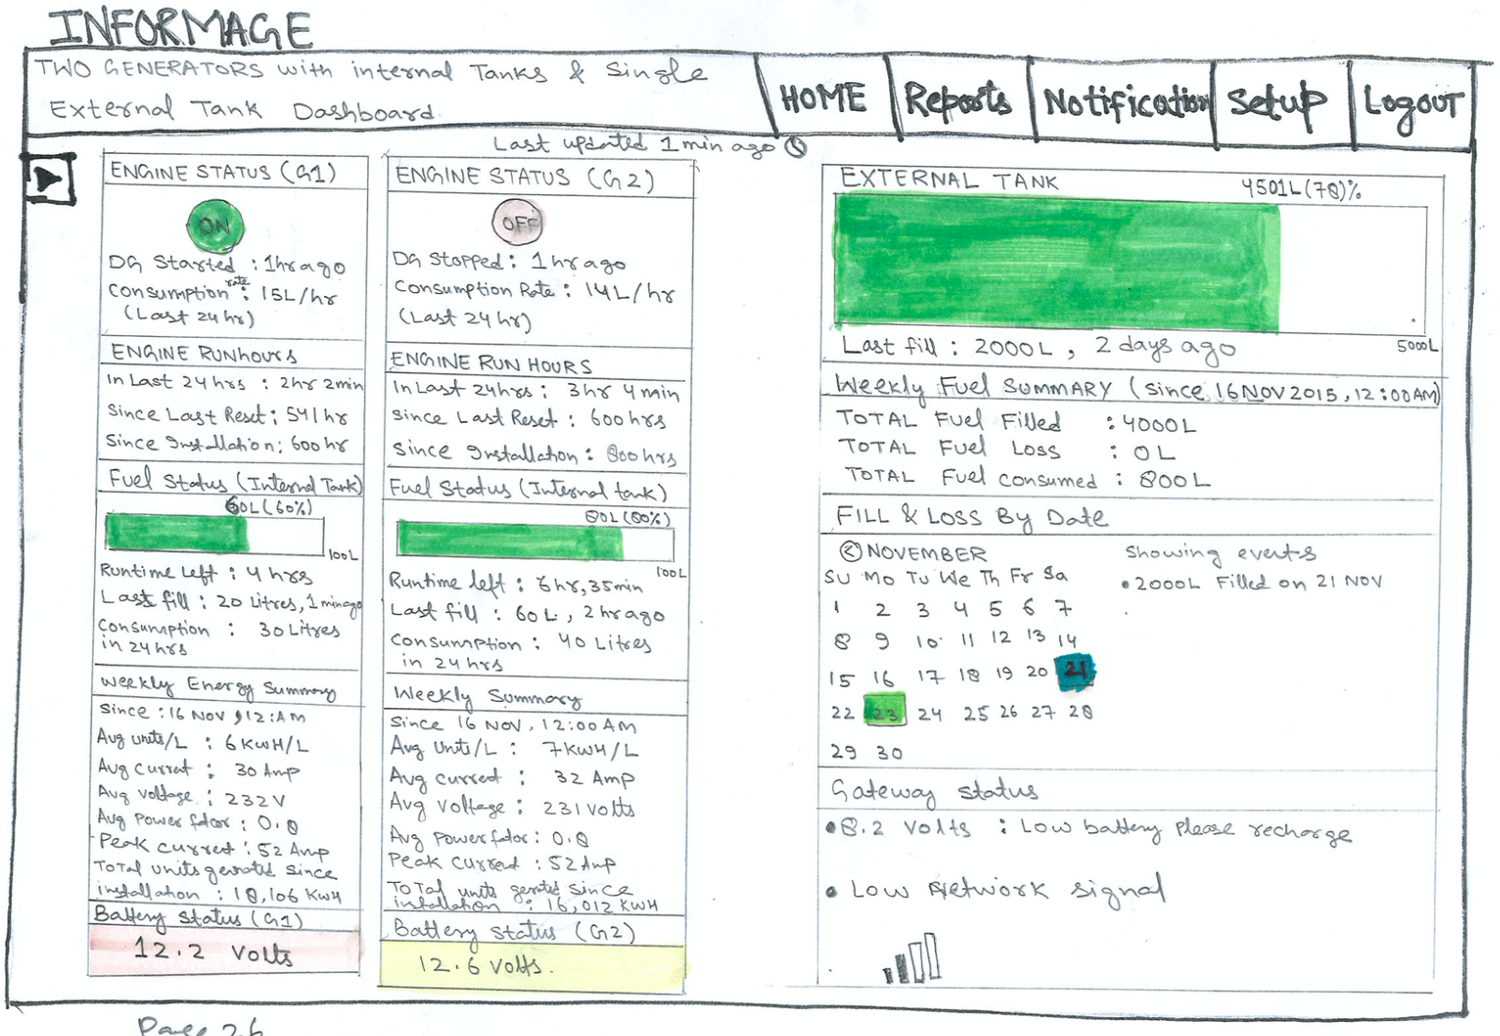 INFORMAGE
TWO GENERATORS with internal Tanks & Single
External Tank Dashboard.
HOME
Reports
Notification
Setup
Logout
Last updated 1 min ago
ENGINE STATUS (G1)
ON
DG Started : 1hr ago
Consumption rate : 15L/hr
(Last 24 hr)
ENGINE RUNhours
In Last 24 hrs : 2hr 2min
Since Last Reset : 541 hr
Since Installation : 600 hr
Fuel Status (Internal Tank)
60L (60%)
100L
Runtime Left : 4 hrs
Last fill : 20 Litres, 1 min ago
Consumption : 30 Litres
in 24 hrs
Weekly Energy Summary
Since : 16 Nov, 12:AM
Avg units/L : 6 KWH/L
Avg Current : 30 Amp
Avg Voltage : 232 V
Avg Power factor : 0.8
Peak Current : 52 Amp
TOTAL units genrated since
installation : 18,106 KWH
Battery Status (G1)
12.2 Volts
ENGINE STATUS (G2)
OFF
DG Stopped : 1 hr ago
Consumption Rate : 14L/hr
(Last 24 hr)
ENGINE RUN HOURS
In Last 24hrs : 3hr 4min
Since Last Reset : 600 hrs
Since Installation : 800 hrs
Fuel Status (Internal tank)
80L (80%)
100L
Runtime left : 6hr, 35min
Last fill : 60 L, 2 hr ago
Consumption : 40 Litres
in 24 hrs
Weekly Summary
Since 16 NOV, 12:00 AM
Avg Units/L : 7 KWH/L
Avg Current : 32 Amp
Avg Voltage : 231 Volts
Avg Power factor : 0.8
Peak Current : 52 Amp
TOTAL units genrated since
installation : 16,012 KWH
Battery Status (G2)
12.6 Volts.
EXTERNAL TANK
4501L (78)%
5000L
Last fill : 2000L, 2 days ago
Weekly Fuel SUMMARY (since 16 NOV 2015, 12:00AM)
TOTAL Fuel Filled : 4000L
TOTAL Fuel Loss : 0L
TOTAL Fuel consumed : 800L
FILL & LOSS By Date
< NOVEMBER
Su Mo Tu We Th Fr Sa
1 2 3 4 5 6 7
8 9 10 11 12 13 14
15 16 17 18 19 20 21
22 23 24 25 26 27 28
29 30
Showing events
• 2000L Filled on 21 NOV
Gateway status
• 8.2 Volts : Low battery please recharge
• Low Network signal
Page 26